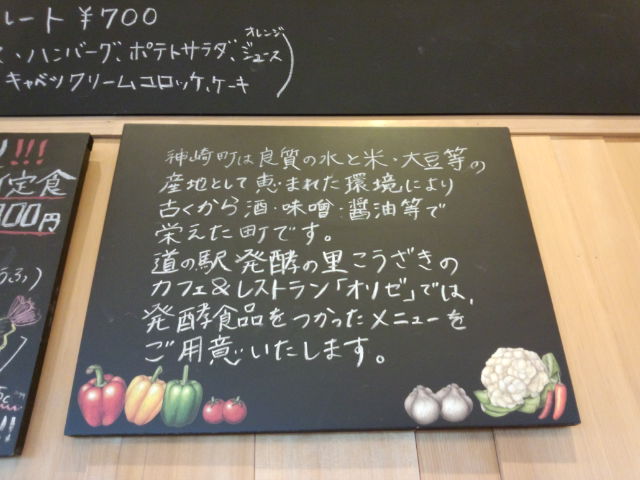 レート ¥700
ス・ハンバーグ、ポテトサラダ、ジュース
オレンジ
キャベツクリームコロッケ、ケーキ
!!!
定食
00円
神崎町は良質の水と米・大豆等の
産地として恵まれた環境により
古くから酒・味噌・醤油等で
栄えた町です。
道の駅発酵の里こうざきの
カフェ&レストラン「オリゼ」では、
発酵食品をつかったメニューを
ご用意いたします。